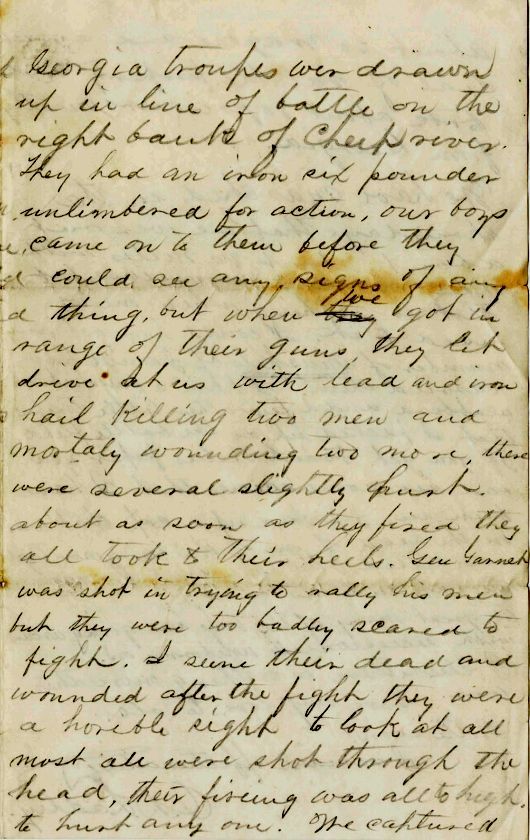 Georgia troupes wer drawn
up in line of battle on the
right bank of Cheek river.
They had an iron six pounder
unlimbered for action, our boys
came on to them before they
could see any signs of any
thing, but when they we got in
range of their guns, they let
drive at us with lead and iron
hail killing two men and
mortaly wounding two more, there
were several slightly hurt.
about as soon as they fired they
all took to their heels. Gen Garnet
was shot in trying to rally his men
but they were too badley scared to
fight. I seene their dead and
wounded after the fight they were
a horible sight to look at all
most all were shot through the
head, their fireing was all to high
to hurt any one. We captured